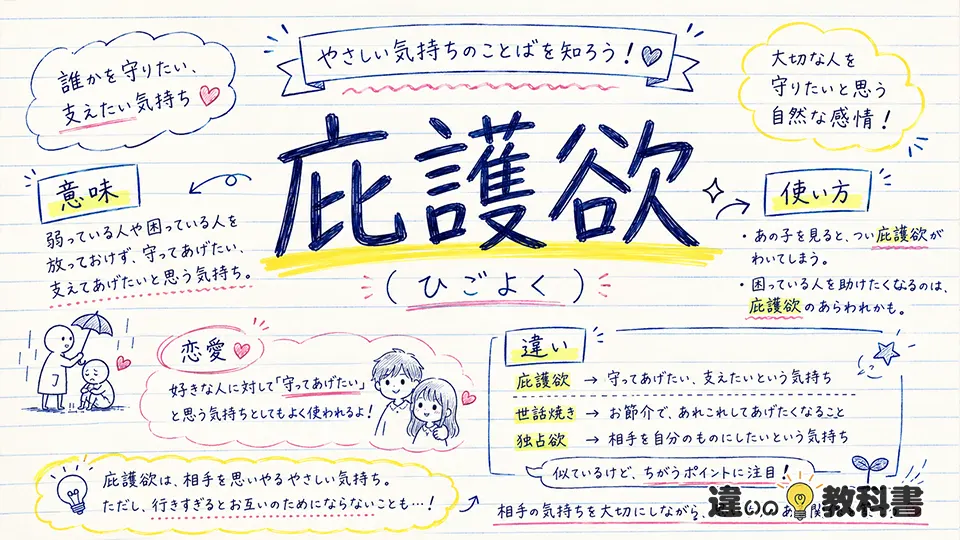 やさしい気持ちのことばを知ろう！
誰かを守りたい、
支えたい気持ち
大切な人を
守りたいと思う
自然な感情！
庇護欲
（ひごよく）
意味
弱っている人や困っている人を
放っておけず、守ってあげたい、
支えてあげたいと思う気持ち。
使い方
・あの子を見ると、つい庇護欲が
わいてしまう。
・困っている人を助けたくなるのは、
庇護欲のあらわれかも。
恋愛
好きな人に対して「守ってあげたい」
と思う気持ちとしてもよく使われるよ！
違い
庇護欲 → 守ってあげたい、支えたいという気持ち
世話焼き → お節介で、あれこれしてあげたくなること
独占欲 → 相手を自分のものにしたいという気持ち
似ているけど、ちがうポイントに注目！
庇護欲は、相手を思いやるやさしい気持ち。
ただし、行きすぎるとお互いのためにならないことも…！
相手の気持ちを大切にしながら、
違いの教科書